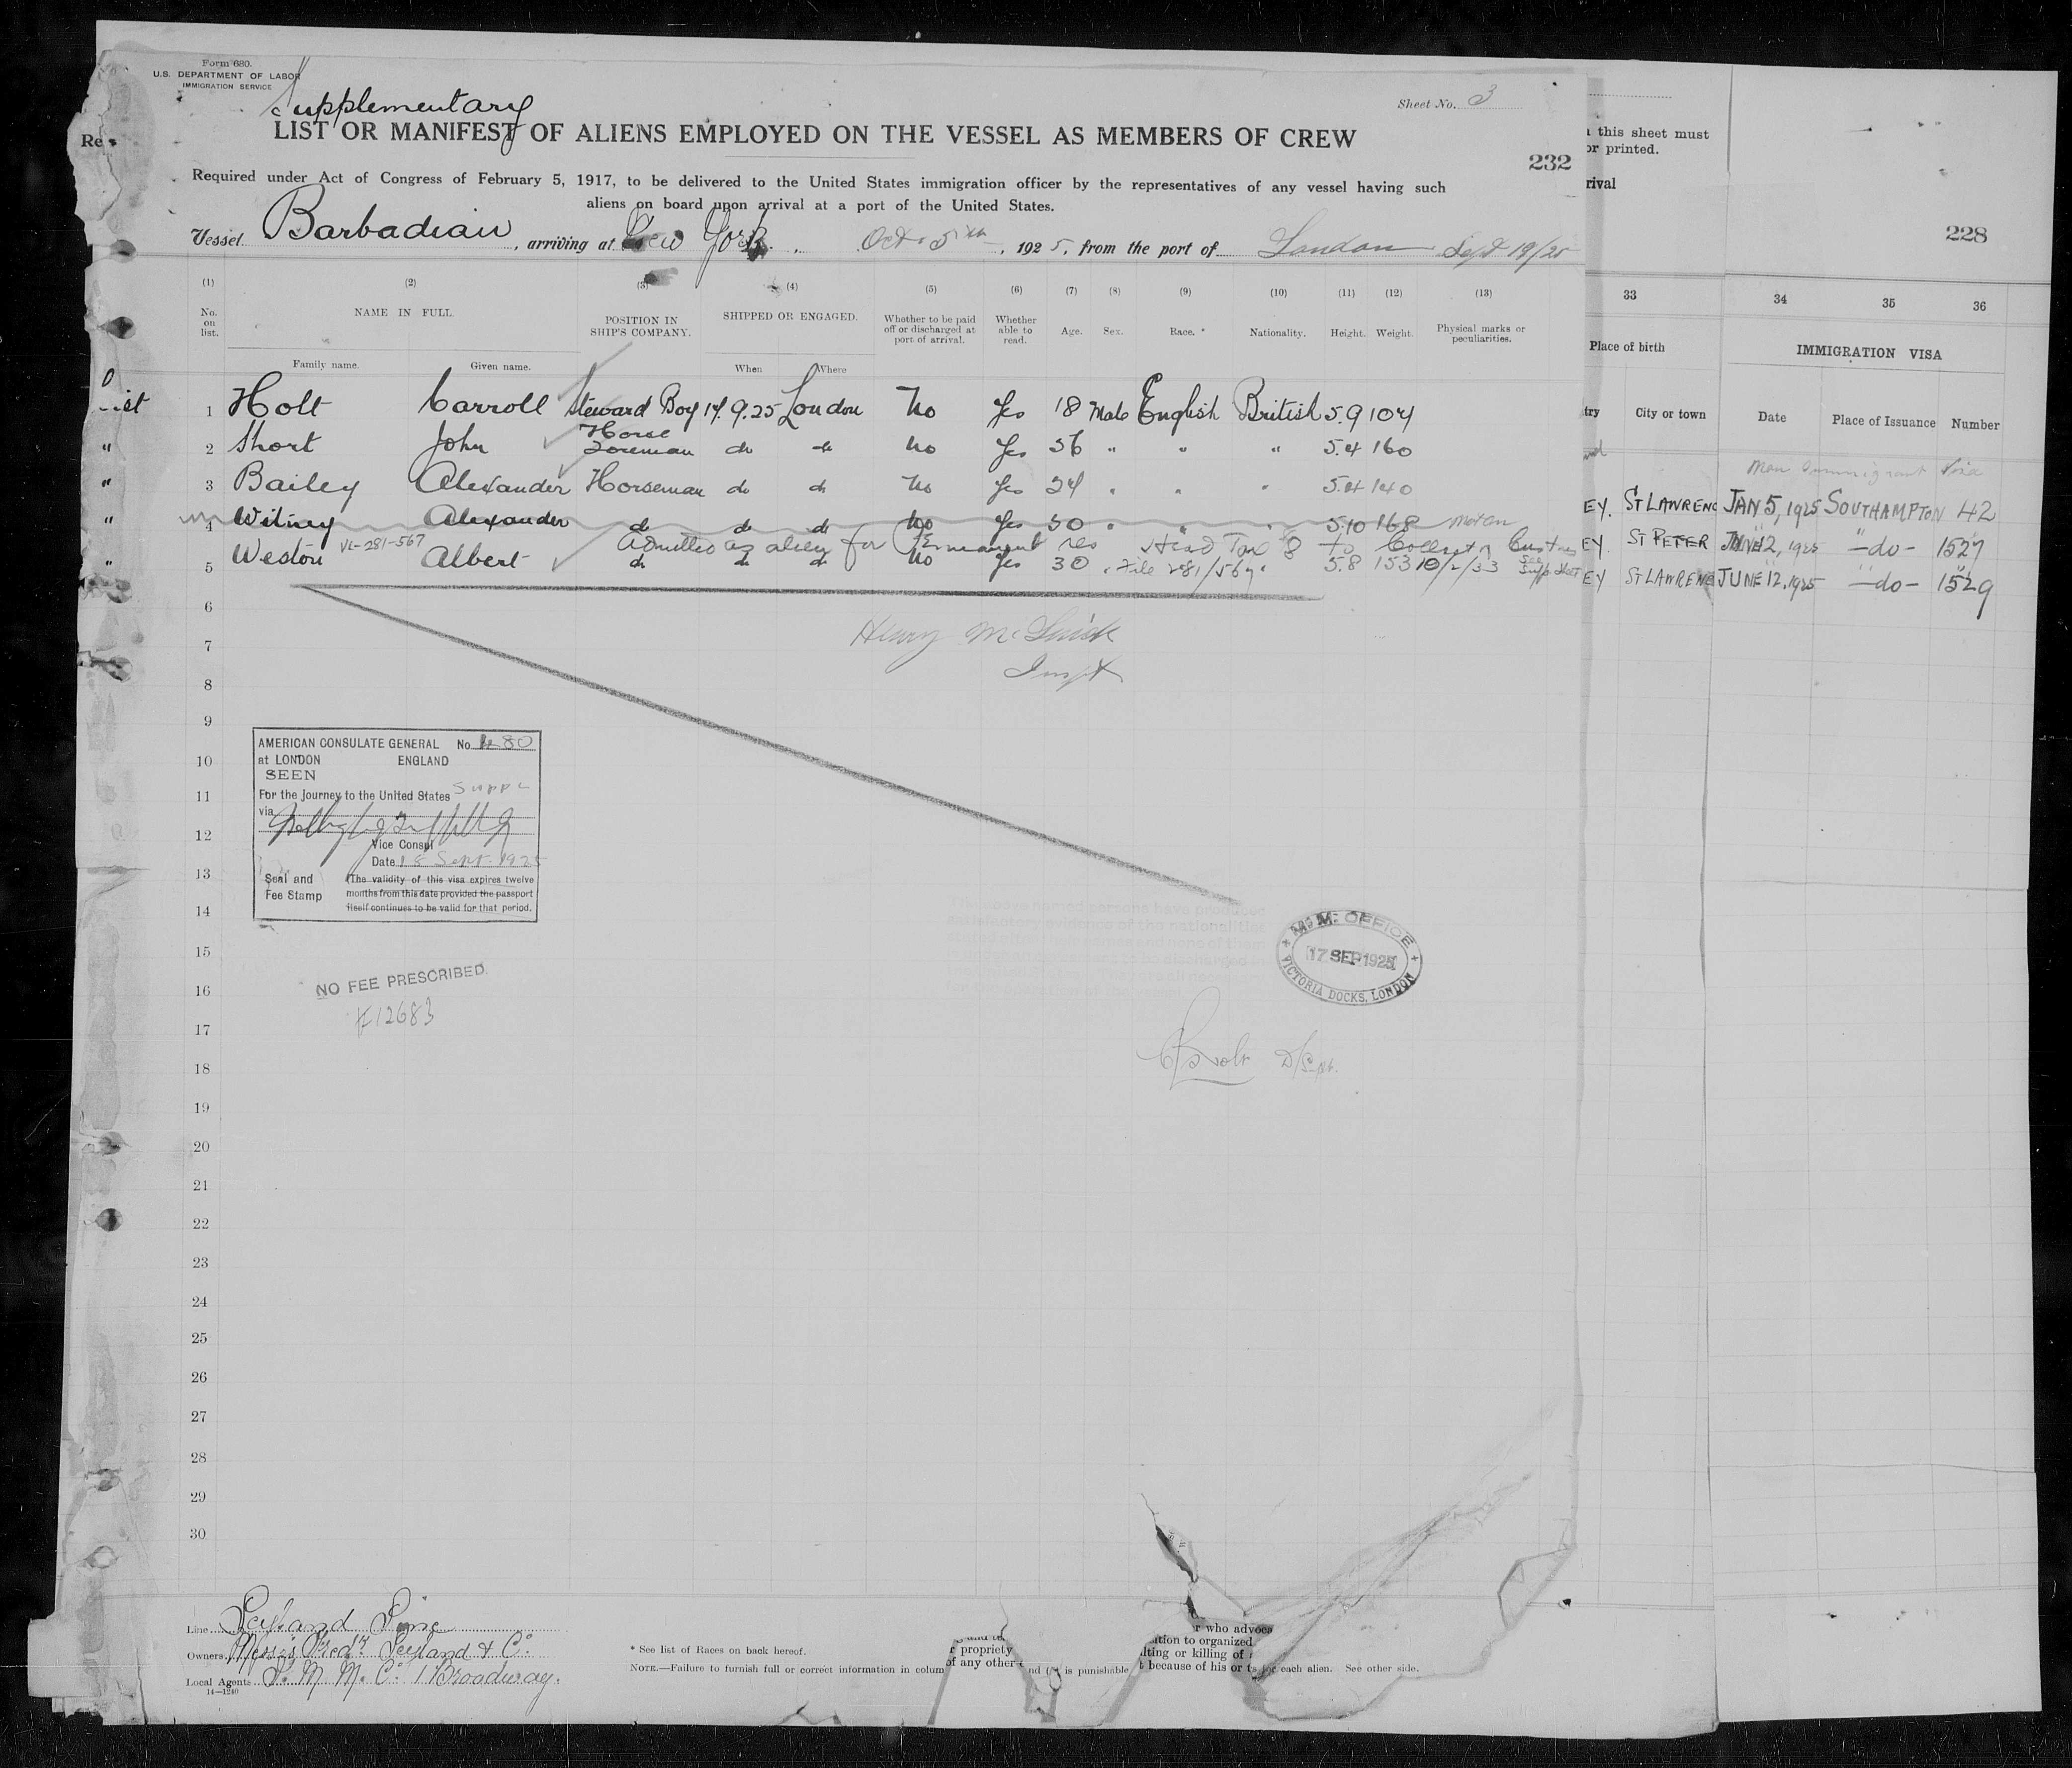 Form 680.
U.S. DEPARTMENT OF LABOR
IMMIGRATION SERVICE
Supplementary
Sheet No. 3
LIST OR MANIFEST OF ALIENS EMPLOYED ON THE VESSEL AS MEMBERS OF CREW
232
Required under Act of Congress of February 5, 1917, to be delivered to the United States immigration officer by the representatives of any vessel having such
aliens on board upon arrival at a port of the United States.
Vessel Barbadian, arriving at New York, Oct. 5th, 1925, from the port of London Sept 19/25
(1) (2) (3) (4) (5) (6) (7) (8) (9) (10) (11) (12) (13)
No. on list. NAME IN FULL. POSITION IN SHIP'S COMPANY. SHIPPED OR ENGAGED. Whether to be paid off or discharged at port of arrival. Whether able to read. Age. Sex. Race. * Nationality. Height. Weight. Physical marks or peculiarities.
Family name. Given name. When Where
1 Holt Carroll Steward Boy 17.9.25 London No Yes 18 Male English British 5.9 104
2 Short John Horse Foreman do do No Yes 36 " " " 5.4 160
3 Bailey Alexander Horseman do do No Yes 24 " " " 5.4 140
4 Witney Alexander do do do No Yes 50 " " " 5.10 168
VL-281-567 Admitted as alien for Permanent res Head Tax 8 to Collector Customs
5 Weston Albert do do do No Yes 30 " File 281/567 5.8 153 10/2/33 See Supp Sheet
6
7
8
9
10
11
12
13
14
15
16
17
18
19
20
21
22
23
24
25
26
27
28
29
30
Henry
Inspt
AMERICAN CONSULATE GENERAL No. 480
at LONDON ENGLAND
SEEN
For the journey to the United States Suppl
via
Vice Consul
Date 18 Sept. 1925
Seal and
Fee Stamp
(The validity of this visa expires twelve
months from this date provided the passport
itself continues to be valid for that period.
NO FEE PRESCRIBED.
#12683
M.M. OFFICE
17 SEP 1925
VICTORIA DOCKS, LONDON
D/Supt.
Line Leyland Line
Owners Messrs Fredk Leyland & Co.
Local Agents I. M. M. Co. 1 Broadway.
14—1240
* See list of Races on back hereof.
NOTE.—Failure to furnish full or correct information in colum
is punishable
for each alien. See other side.
r propriety
of any other
r who advoca
ition to organized
lting or killing of
t because of his or
this sheet must
or printed.
rival
228
33 34 35 36
Place of birth IMMIGRATION VISA
try City or town Date Place of Issuance Number
Non immigrant Visa
EY. ST LAWRENC JAN 5, 1925 SOUTHAMPTON 42
EY. ST PETER JUNE 12, 1925 —do— 1527
EY ST LAWRENC JUNE 12, 1925 —do— 1529